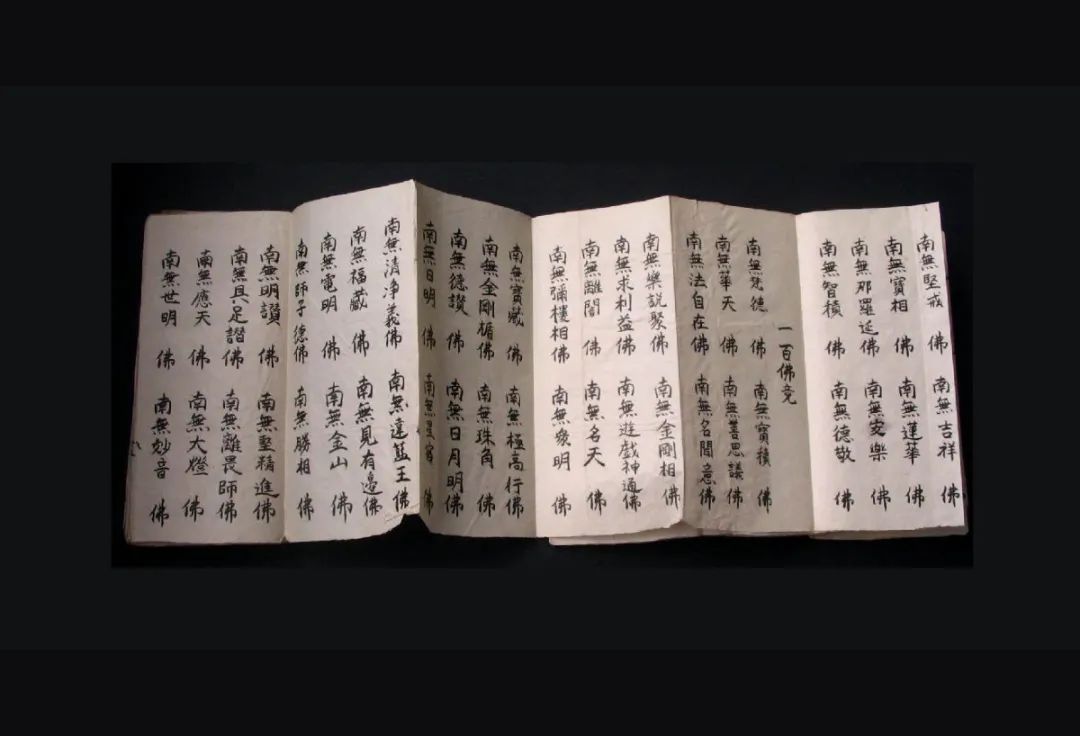 南無堅戒佛 南無吉祥佛
南無寶相佛 南無蓮華佛
南無那羅延佛 南無安樂佛
南無智積佛 南無德敬佛
一百佛竟
南無梵德佛 南無寶積佛
南無華天佛 南無善思議佛
南無法自在佛 南無名聞意佛
南無樂説聚佛 南無金剛相佛
南無求利益佛 南無遊戲神通佛
南無離闇佛 南無名天佛
南無彌樓相佛 南無衆明佛
南無寶藏佛 南無極高行佛
南無金剛楯佛 南無珠角佛
南無德讚佛 南無日月明佛
南無日明佛 南無星宿佛
南無清淨義佛 南無違藍王佛
南無福藏佛 南無見有邊佛
南無電明佛 南無金山佛
南無師子德佛 南無勝相佛
南無明讚佛 南無堅精進佛
南無具足讚佛 南無離畏師佛
南無應天佛 南無大燈佛
南無世明佛 南無妙音佛